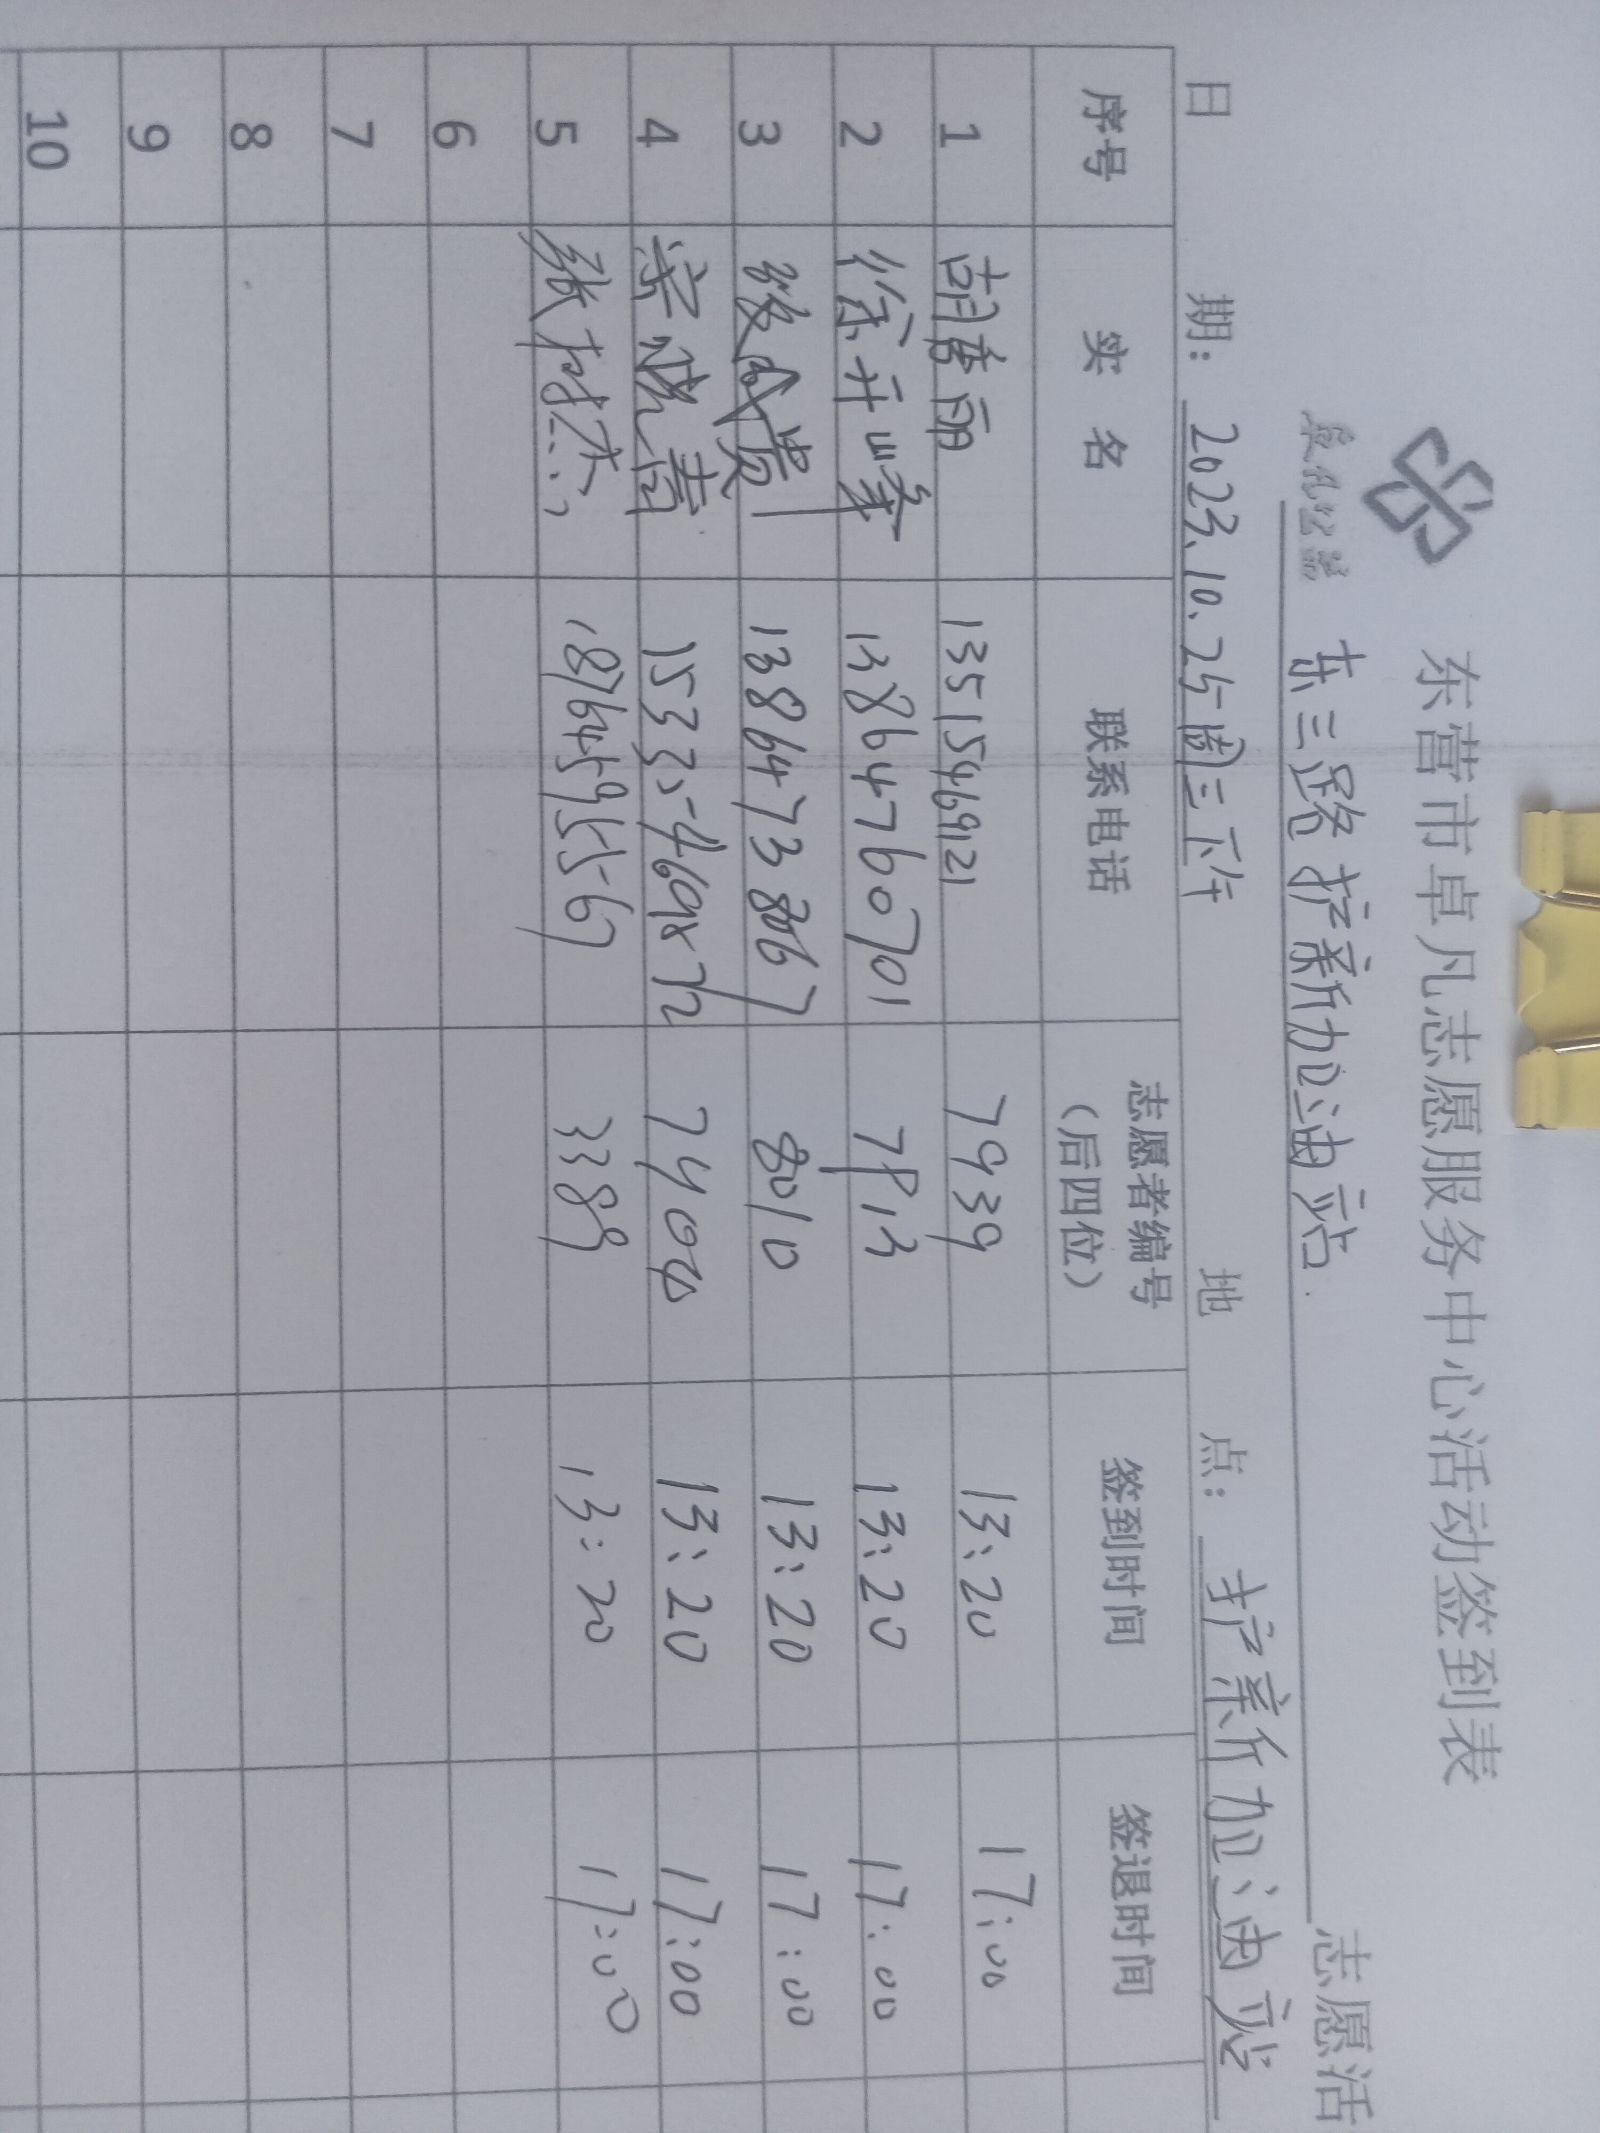 东营市卓凡志愿服务中心活动签到表
卓凡公益 东三路护新加油站. 志愿活
日 期: 2023.10.25周三下午 地 点: 护新加油站
序号 实 名 联系电话 志愿者编号 签到时间 签退时间
(后四位)
1 胡春丽 13515469121 7939 13:20 17:00
2 徐开峰 13864760701 7813 13:20 17:00
3 成贵 13864738067 8010 13:20 17:00
4 宗晓青 7404 13:20 17:00
5 张树杰 18764595567 3389 13:20 17:00
6
7
8
9
10